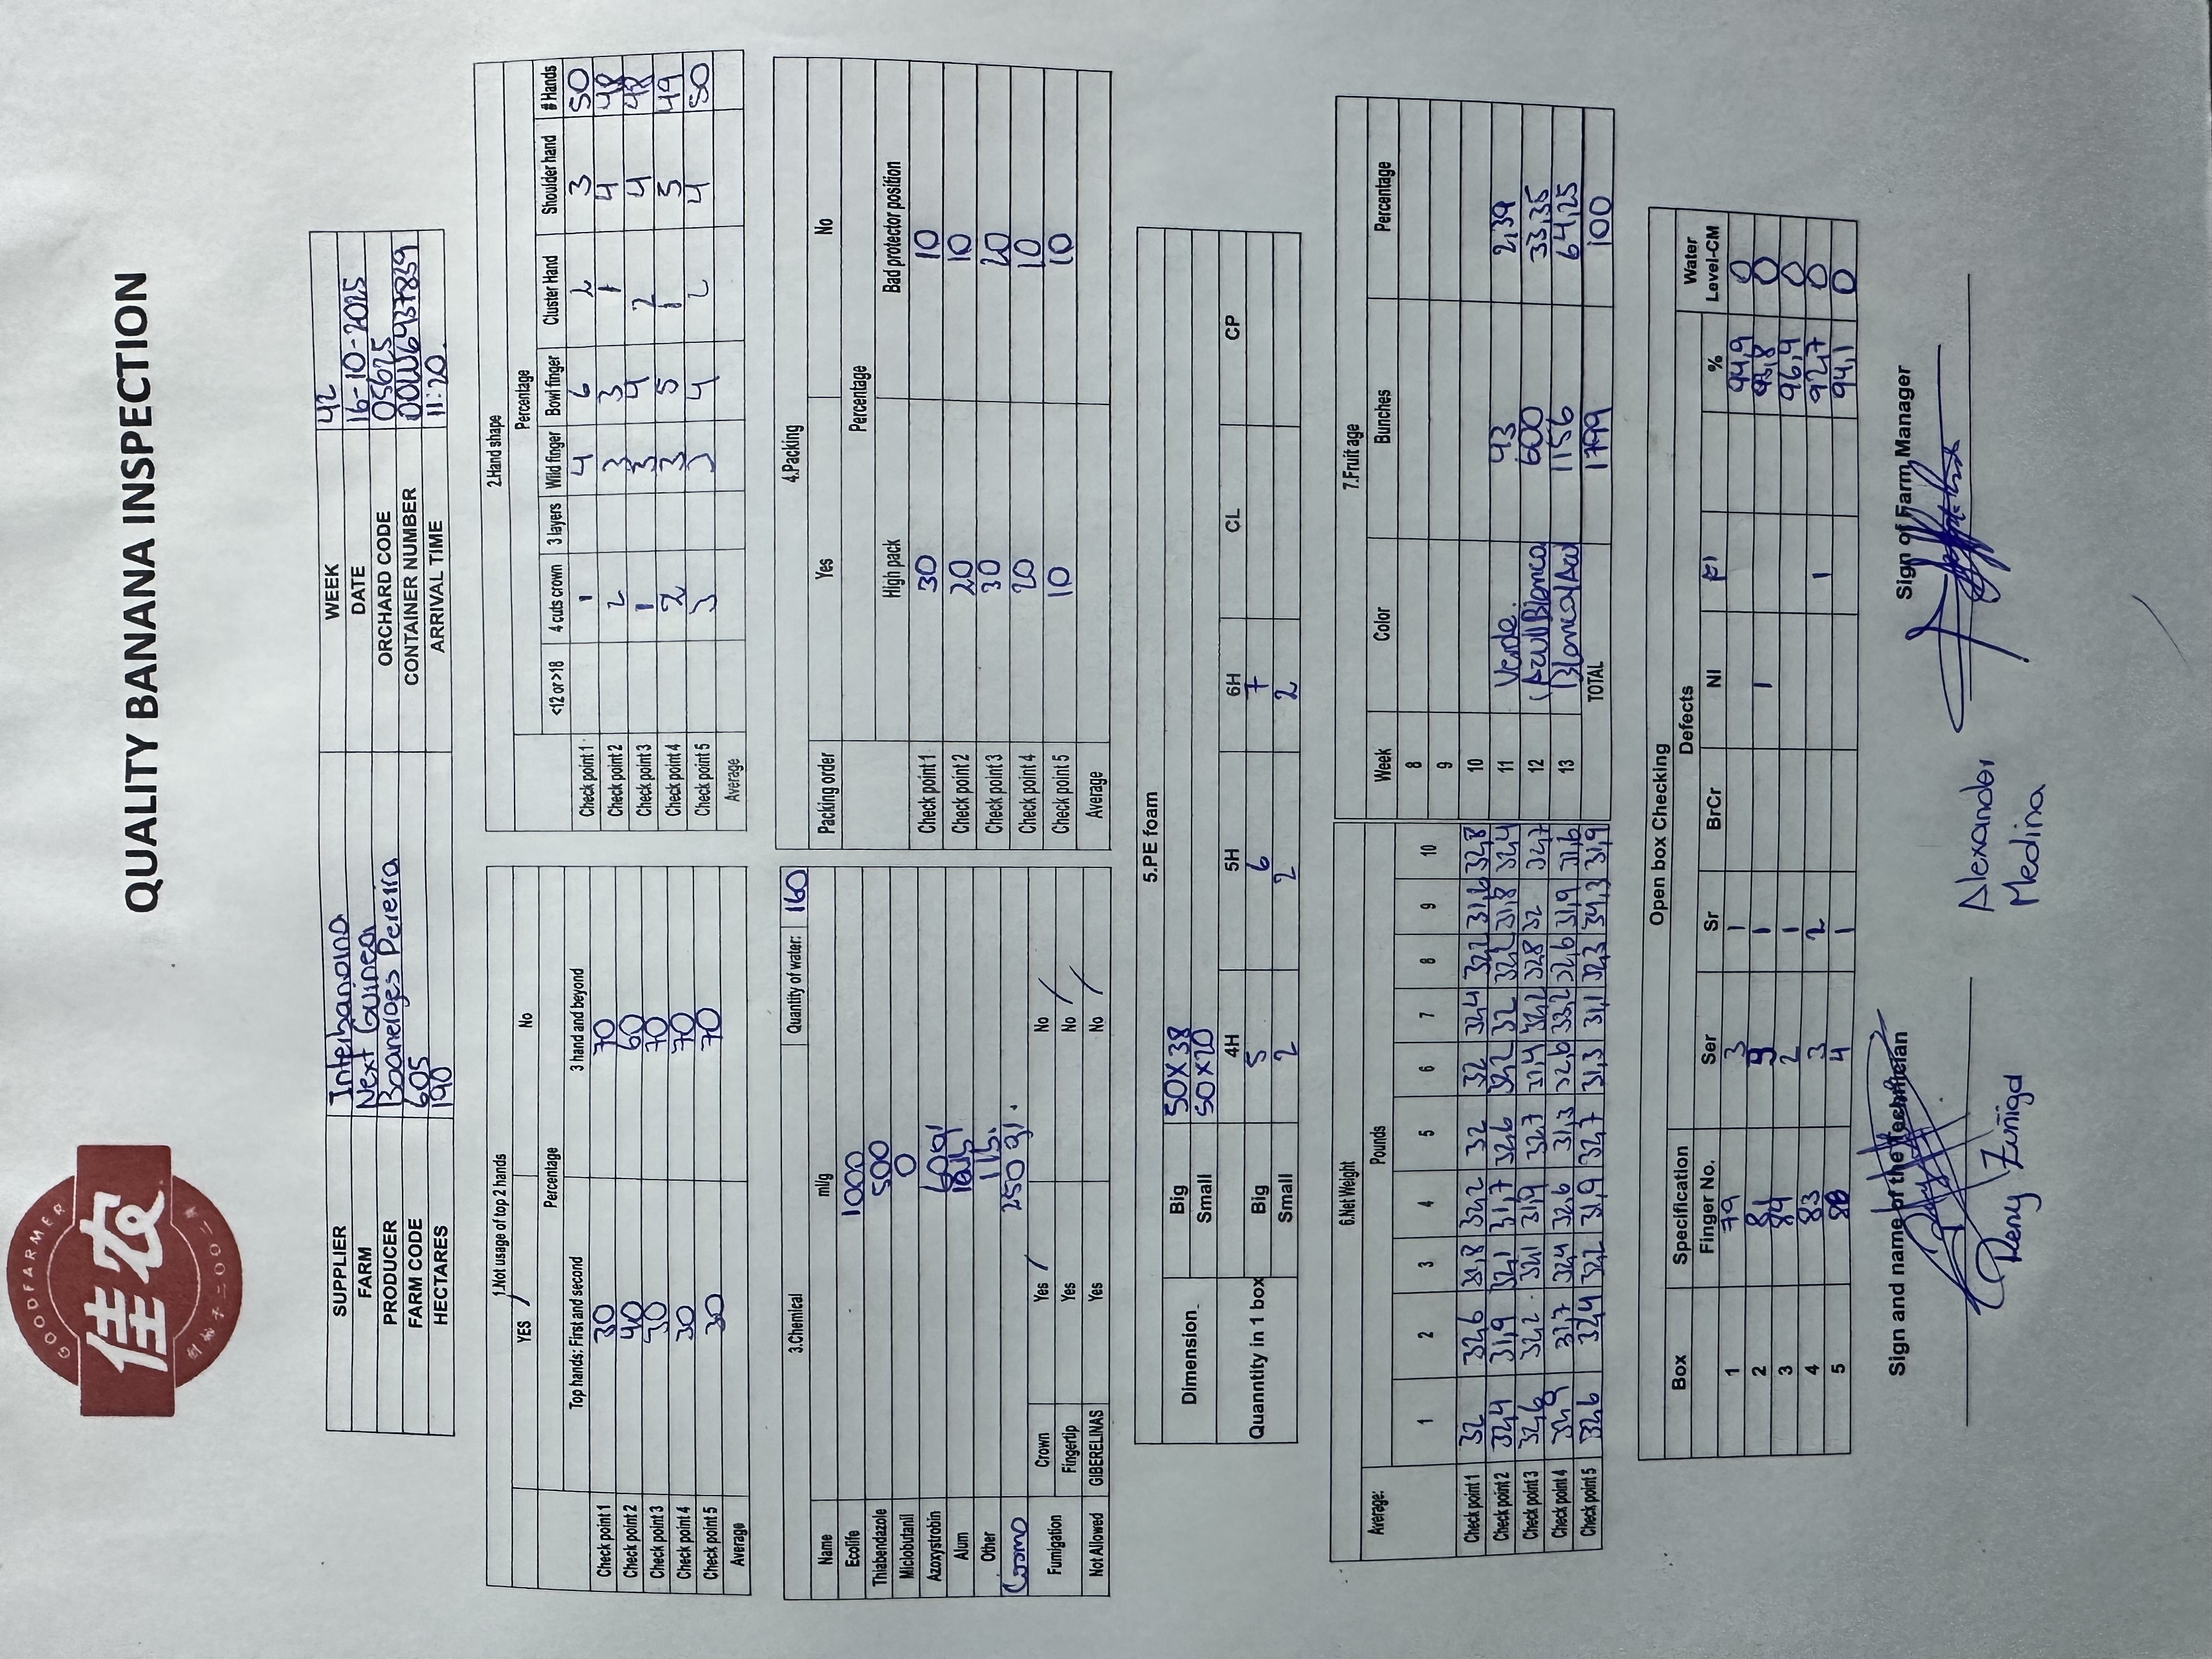 GOODFARMER
佳农
创始于二〇〇二年
QUALITY BANANA INSPECTION
SUPPLIER Interbanana WEEK 42
FARM Next Guinea DATE 16-10-2025
PRODUCER Boanerges Pereira ORCHARD CODE 05625
FARM CODE 605 CONTAINER NUMBER OOLU6937839
HECTARES 190 ARRIVAL TIME 11:20.
1.Not usage of top 2 hands
YES / No
Percentage
Top hands: First and second 3 hand and beyond
Check point 1 30 70
Check point 2 40 60
Check point 3 30 70
Check point 4 30 70
Check point 5 30 70
Average
2.Hand shape
Percentage
<12 or >18 4 cuts crown 3 layers Wild finger Bowl finger Cluster Hand Shoulder hand # Hands
Check point 1 1 4 6 2 3 50
Check point 2 2 3 3 1 4 48
Check point 3 1 3 4 2 4 48
Check point 4 2 3 5 1 5 49
Check point 5 3 3 4 2 4 50
Average
3.Chemical Quantity of water: 160
Name ml/g
Ecolife 1000
Thiabendazole 500
Miclobutanil 0
Azoxystrobin 60gr
Alum
Other 115.
Cosmo 250 gr.
Fumigation Crown Yes / No
Fingertip Yes No /
Not Allowed GIBERELINAS Yes No /
4.Packing
Packing order Yes No
Percentage
High pack Bad protector position
Check point 1 30 10
Check point 2 20 10
Check point 3 30 20
Check point 4 20 10
Check point 5 10 10
Average
5.PE foam
Dimension Big 50X38
Small 50X20
Quanntity in 1 box 4H 5H 6H CL CP
Big 5 6 7
Small 2 2 2
6.Net Weight
Average: Pounds
1 2 3 4 5 6 7 8 9 10
Check point 1 32 32,6 31,8 32,2 32 32 32,4 32,2 31,6 32,8
Check point 2 32,4 31,9 32,1 31,7 32,6 32,2 32 32,2 31,8 32,4
Check point 3 32,6 32,2 32,1 31,9 32,7 31,4 32,2 32,8 32 32,7
Check point 4 32,9 31,7 32,4 32,6 31,3 32,6 33,2 32,6 31,9 32,6
Check point 5 32,6 32,4 32,2 31,9 32,7 31,3 31,1 32,3 34,3 31,9
7.Fruit age
Week Color Bunches Percentage
8
9
10
11 Verde. 43 2,39
12 Azul/Blanco 600 33,35
13 Blanco/Azul 1156 64,25
TOTAL 1799 100
Open box Checking
Box Specification Defects Water
Finger No. Ser Sr BrCr NI FI % Level-CM
1 79 3 1 94,9 0
2 81 3 1 1 93,8 0
3 84 2 1 96,4 0
4 83 3 2 1 92,7 0
5 88 4 1 94,1 0
Sign and name of the Technician Sign of Farm Manager
Reny Zuñiga
Alexander
Medina